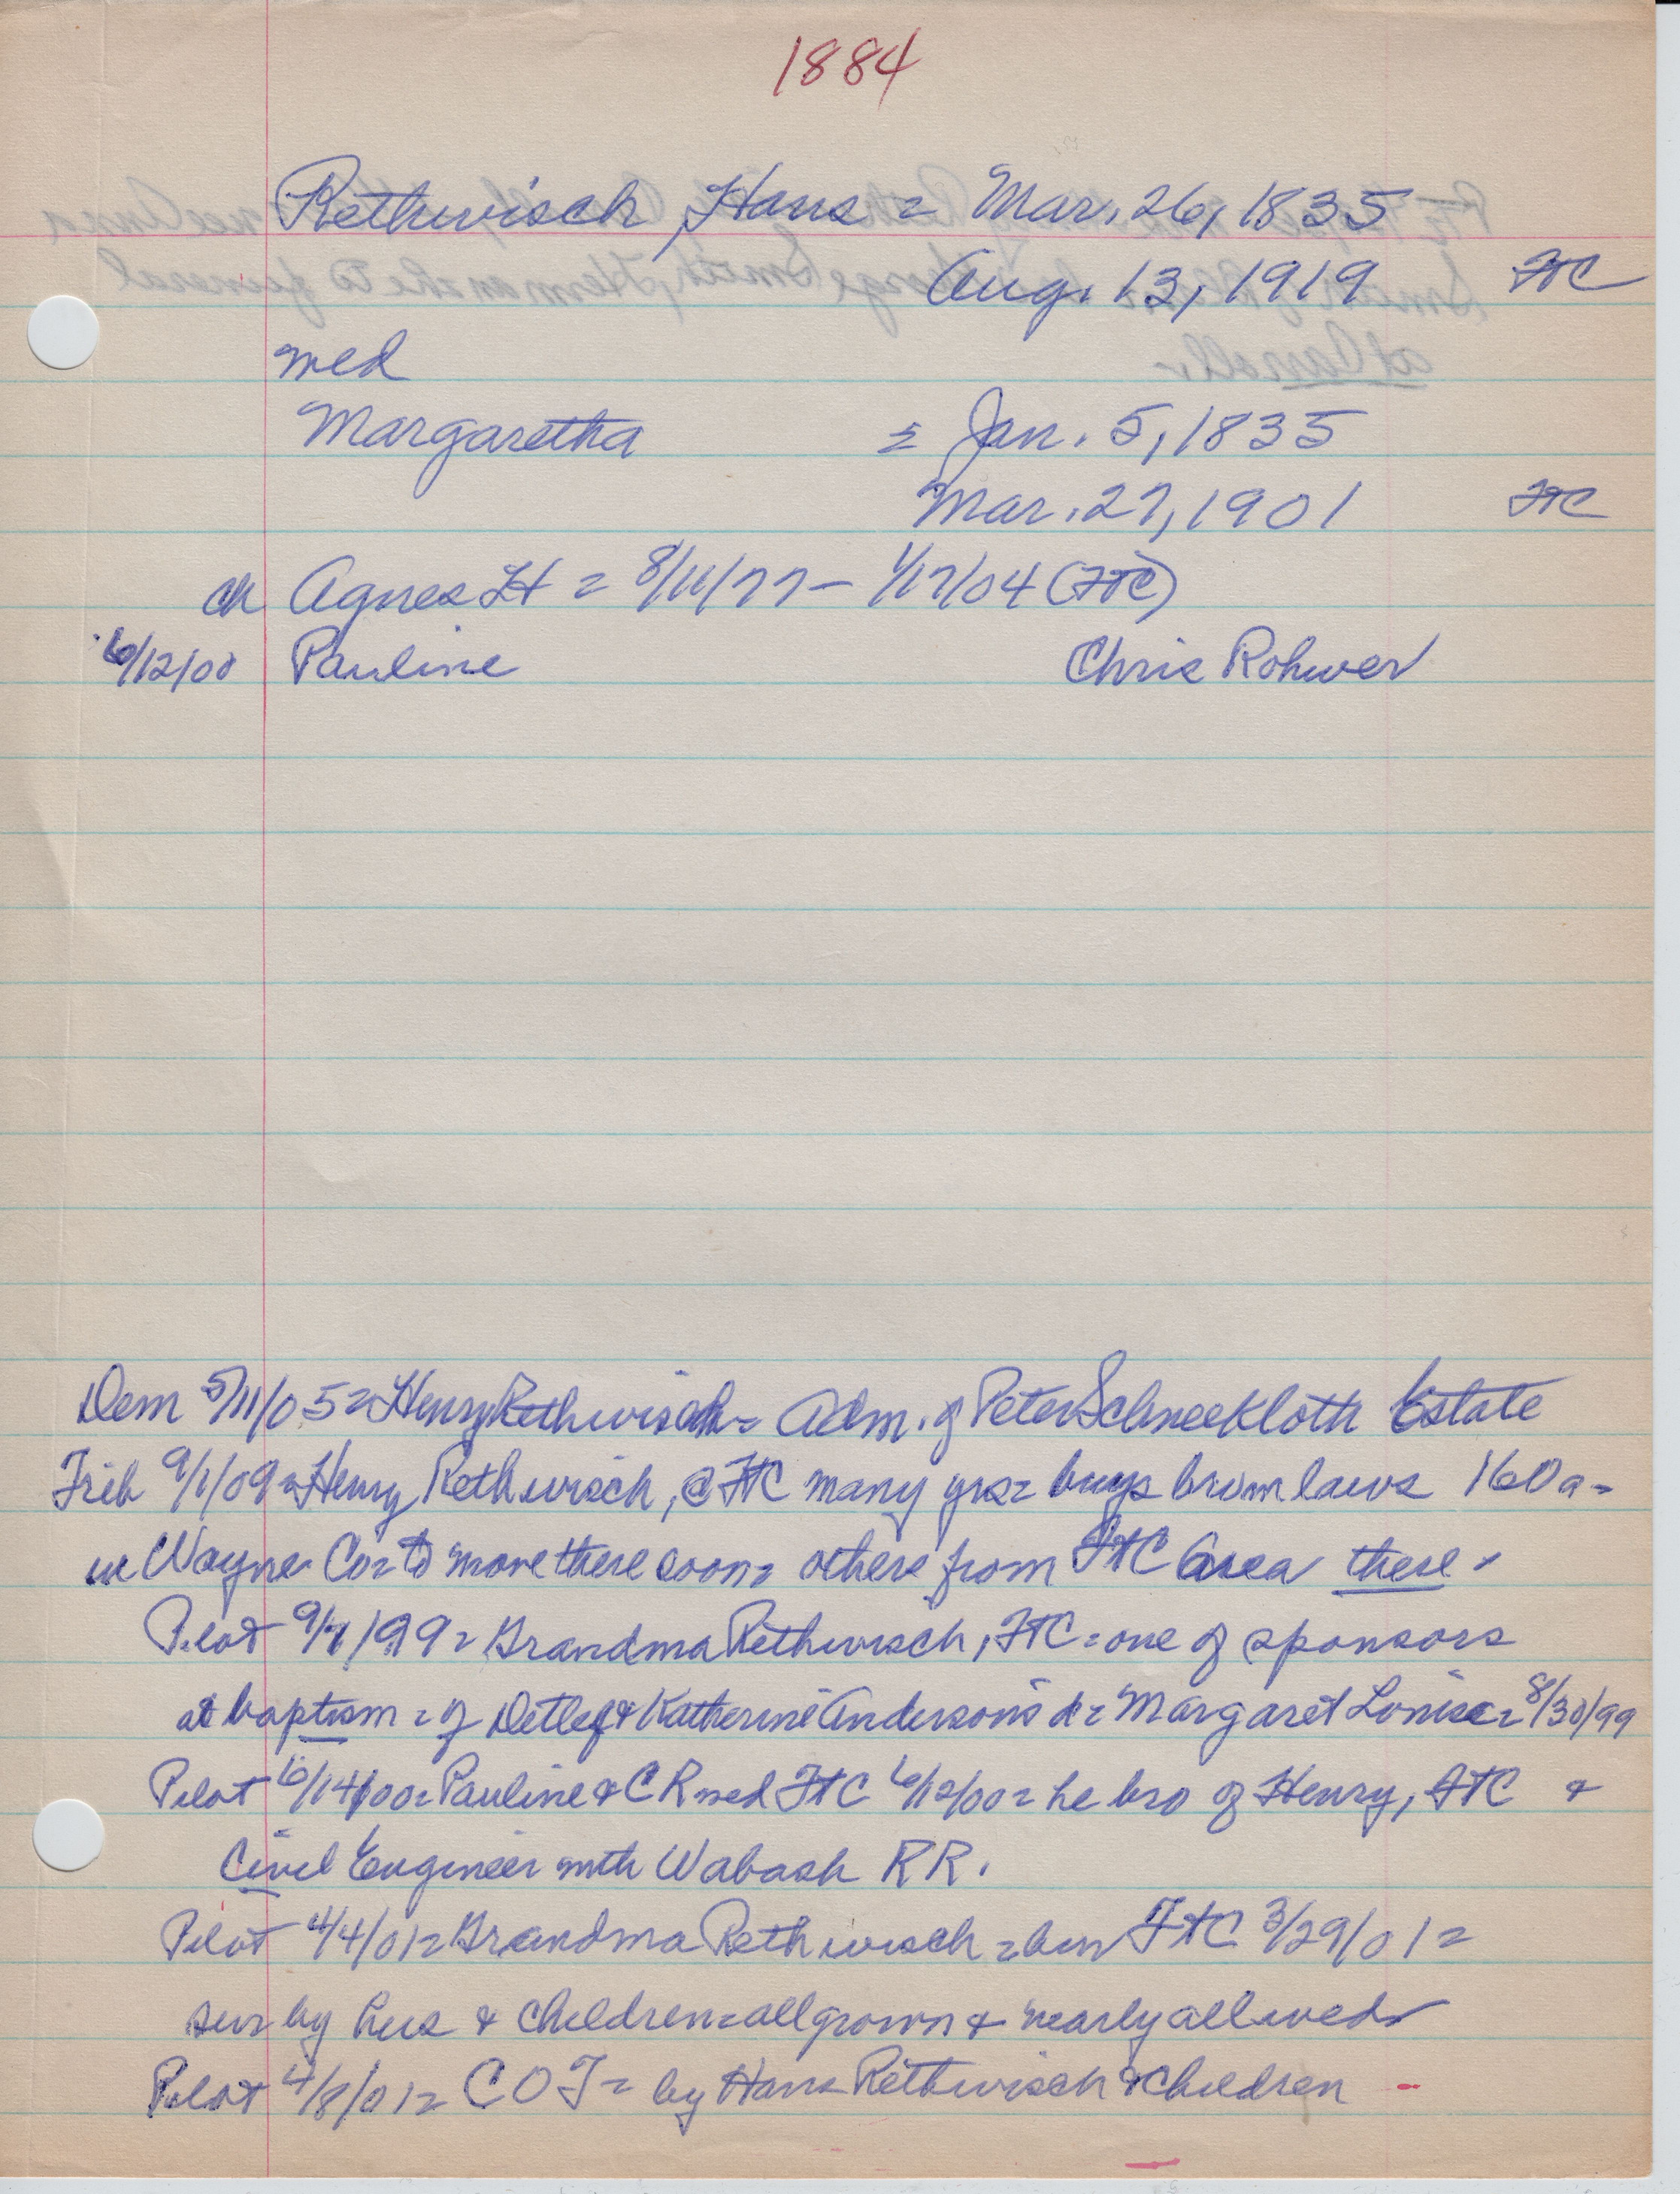 1884
Rethwisch, Hans = Mar. 26, 1835
Aug. 13, 1919 FtC
wed
Margaretha = Jan. 5, 1835
Mar. 27, 1901 FtC
ch Agnes H = 8/11/77 - 1/17/04 (FtC)
6/12/00 Pauline Chris Rohwer
Dem 5/11/05 = Henry Rethwisch = Adm. of Peter Schneekloth Estate
Trib 9/1/09 = Henry Rethwisch, @ FtC many yrs = buys 160 a -
in Wayne Co = to move there soon = others from FtC area there -
Pilot 9/7/99 = Grandma Rethwisch, FtC = one of sponsors
at baptism = of Detlef & Katherine Anderson's d = Margaret Louise = 8/30/99
Pilot 6/14/00 = Pauline & C R wed FtC 6/12/00 = he bro of Henry, FtC &
Civil Engineer with Wabash RR.
Pilot 4/4/01 = Grandma Rethwisch = bur FtC 3/29/01 =
sur by hus & children = all grown & nearly all wed
Pilot 4/8/01 = C O T = by Hans Rethwisch & children -